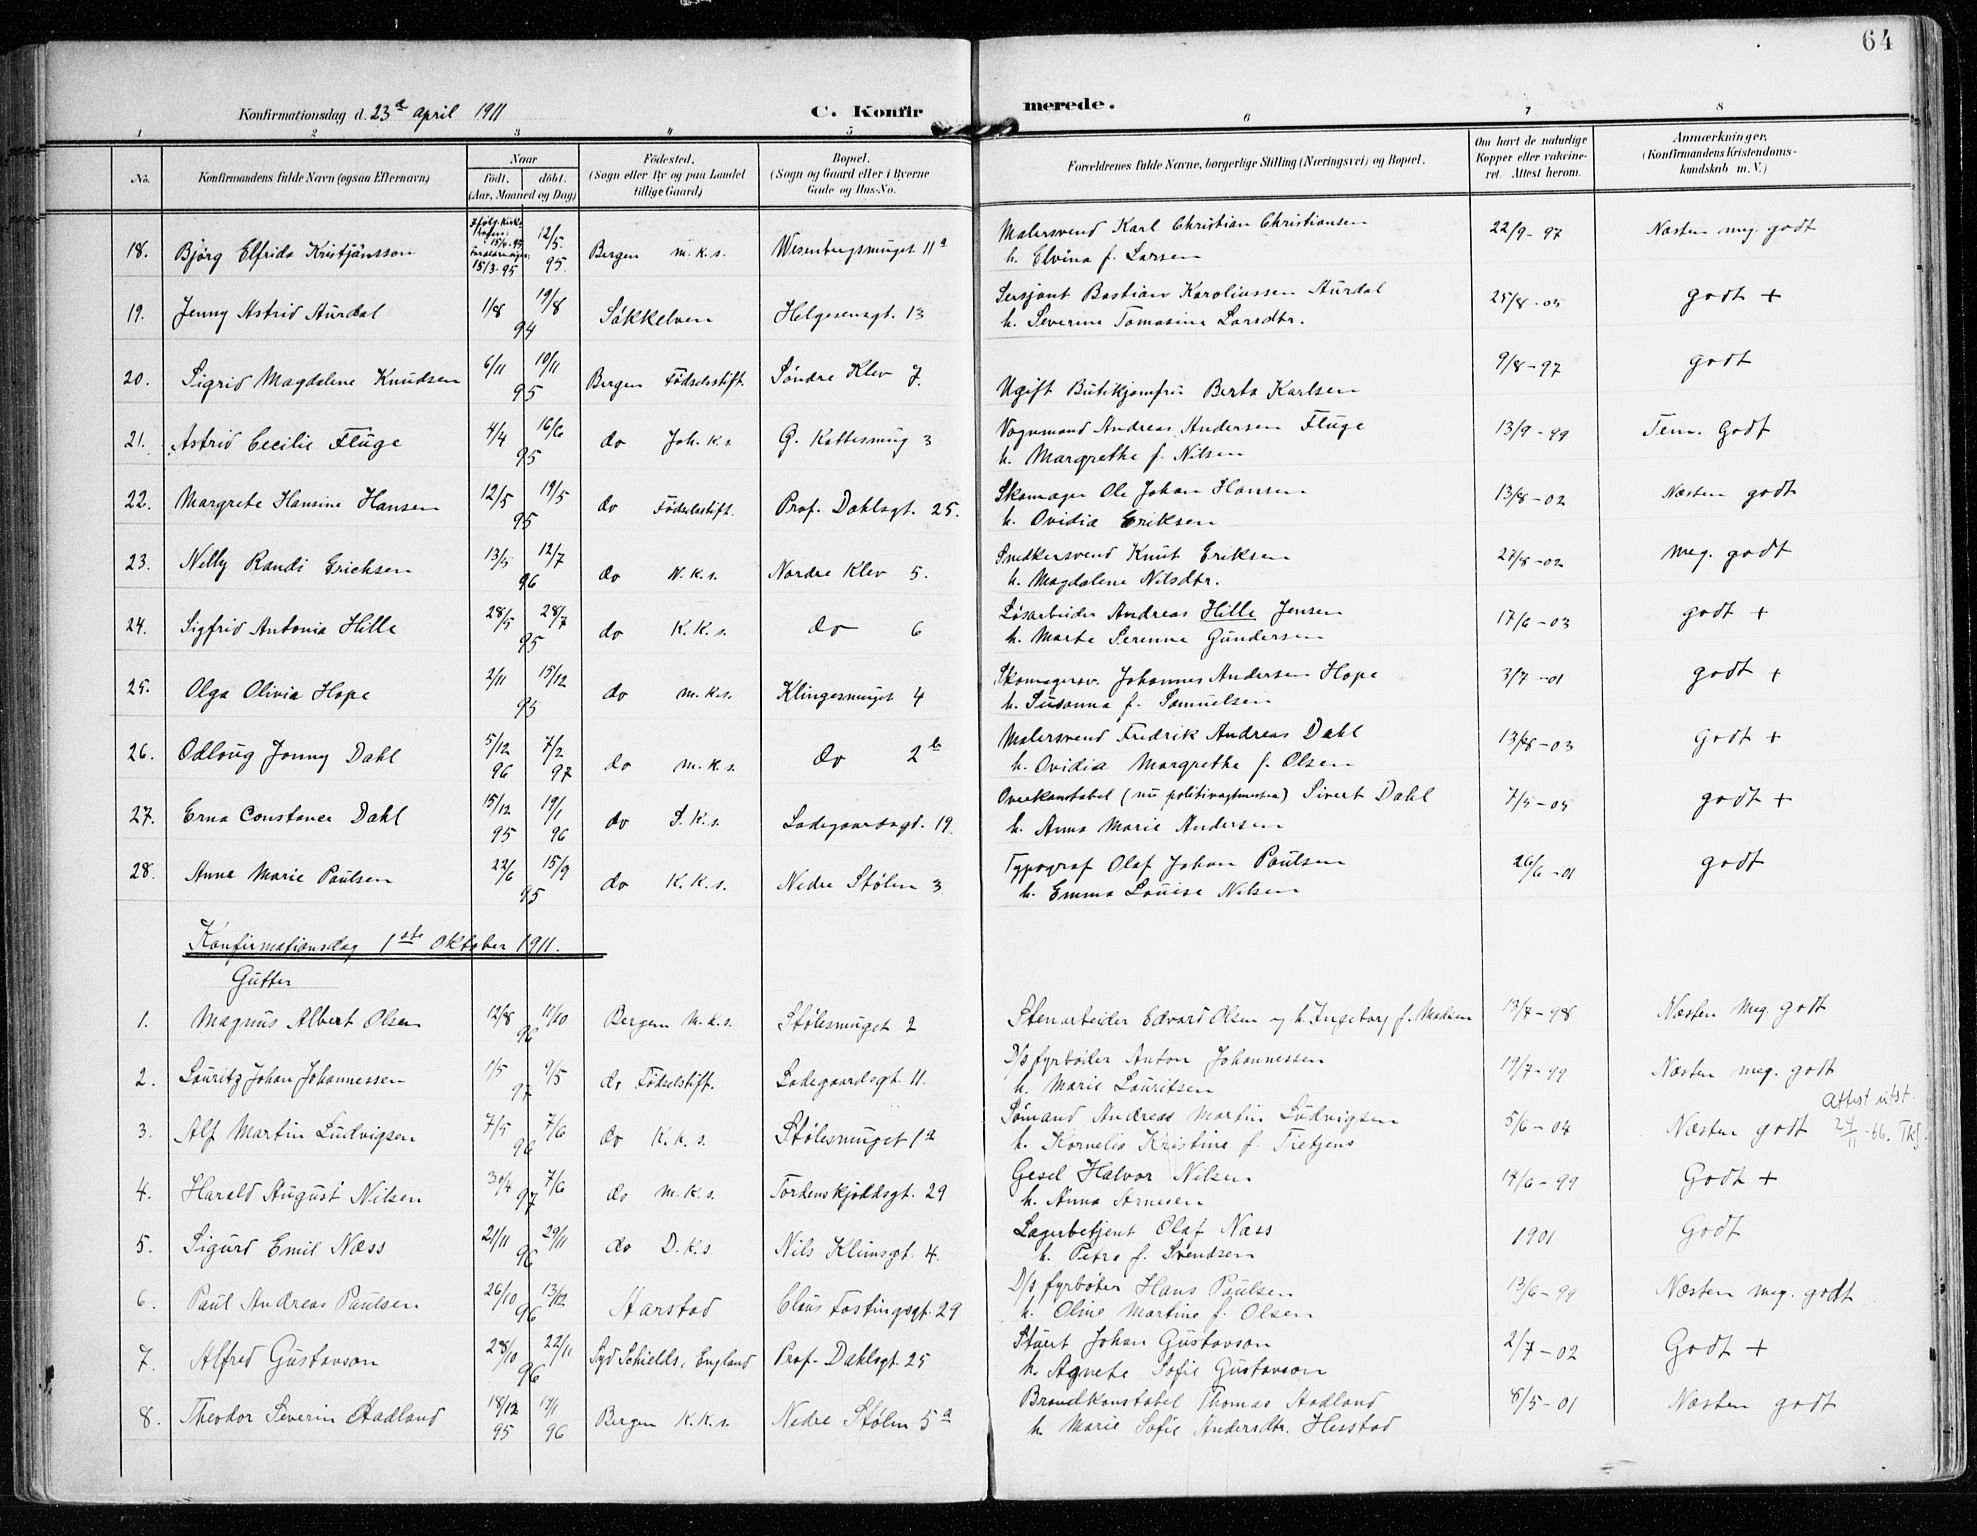 64
Konfirmationsdag d. 23d april 1911
C. Konfirmerede.
1 2 3 4 5 6 7 8
No. Konfirmandens fulde Navn (ogsaa Efternavn) Naar født. døbt. (Aar, Maaned og Dag) Fødested. (Sogn eller By og paa Landet tillige Gaard) Bopæl. (Sogn og Gaard eller i Byerne Gade og Hus-No. Forældrenes fulde Navne, borgerlige Stilling (Næringsvei) og Bopæl. Om havt de naturlige Kopper eller vaccineret. Attest herom. Anmærkninger. (Konfirmandens Kristendomskundskab m. V.)
18. Bjørg Elfrida Kristjánsson 15/3-95 12/5 95. Bergen m.k.s. Wesenbergsmuget 11a Malersvend Karl Christian Christiansen 22/9-97 Næsten meg. godt
h. Elvina f. Larsen
19. Jenny Astrid Aurdal 1/8 19/8 94 Søkkelven Helgesensgt. 13 Sersjant Bastian Karoliussen Aurdal 25/8-05 godt +
h. Severine Tomasine Larsdtr.
20. Sigrid Magdalene Knudsen 6/11 10/11 95 Bergen Fødselsstift. Søndre Klev 7. Ugift Butikjomfru Berta Karlsen 9/8-97 godt
21. Astrid Cecilie Fluge 4/4 16/6 95 do Joh.k.s. G. Kattesmug 3 Vognmand Andreas Andersen Fluge 13/9-99 Tem. Godt
h. Margrethe f. Nilsen
22. Margrete Hansine Hansen 12/5 19/5 95 do Fødselsstift. Prof. Dahlsgt. 25. Skomager Ole Johan Hansen 13/8-02 Næsten godt
h. Ovidia Eriksen
23. Nelly Randi Erichsen 13/5 12/7 96 do N.k.s. Nordre Klev 5. Snedkersvend Knut Eriksen 27/8-02 meg. godt
h. Magdalene Nilsdtr.
24. Sigfrid Antonia Hille 28/5 28/7 95 do K.K.s. do 6 Løsarbeider Andreas Hille Jensen 17/6-03 godt +
h. Marte Serenne Gundersen
25. Olga Olivia Hope 2/11 15/12 95 do m.k.s. Klingesmuget 4 Skomagersv. Johannes Andersen Hope 3/7-01 godt +
h. Susanna f. Samuelsen
26. Odloug Jenny Dahl 5/12 96 7/2 97 do m.k.s. do 2b Malersvend Fredrik Andreas Dahl 13/8-03 Godt +
h. Ovidia Margrethe f. Olsen
27. Erna Constance Dahl 15/12 95 19/1 96 do S.k.s. Ladegaardsgt. 19. Overkonstabel (nu politivagtmester) Sivert Dahl 7/5-05 godt +
h. Anna Marie Andersen
28. Anne Marie Paulsen 22/6 15/9 95 do K.K.s. Nedre Stølen 3 Typograf Olaf Johan Paulsen 26/6-01 godt
h. Emma Louise Nilsen
Konfirmationsdag 1ste Oktober 1911.
Gutter
1. Magnus Albert Olsen 12/8 11/10 96 Bergen M.k.s. Stølesmuget 2 Stenarbeider Edvard Olsen og h. Ingeborg f. Madsen 13/7-98 Næsten meg. godt
2. Lauritz Johan Johannessen 1/5 9/5 97 do Fødselstift. Ladegaardsgt. 11. D/s fyrbøter Anton Johannessen 19/7-99 Næsten meg. godt
h. Marie Lauritsen
3. Alf Martin Ludvigsen 7/5 7/6 96 do K.k.s. Stølesmuget 1a Sømand Andreas Martin Ludvigsen 5/6-04 Næsten godt Attest utst. 24/11-66. ThJ.
h. Kornelia Kristine f. Tietjens
4. Harald August Nilsen 30/4 7/6 97 do M.k.s. Tordenskjoldsgt. 29 Gesel Halvor Nilsen 14/6-99 Godt +
h. Anna Arnesen
5. Sigurd Emil Næss 21/11 29/11 96 do D.k.s. Nils Klimsgt. 4. Lagerbetjent Olaf Næss 1901 Godt
h. Petra f. Svendsen
6. Paul Andreas Paulsen 26/10 13/12 96 Harstad Claus Fastingsgt. 29 D/s fyrbøter Hans Paulsen 13/6-99 Næsten meg. godt
h. Oline Martine f. Olsen
7. Alfred Gustavson 28/10 22/11 96 Syd Schields, England Prof. Dahlsgt. 25 Stuert Johan Gustavson 2/7-02 Godt +
h. Agnete Sofie Gustavson
8. Theodor Severin Aadland 18/12 95 19/1 96 Bergen K.K.s. Nedre Stølen 5a Brandkonstabel Thomas Aadland 8/5-01 Næsten godt
h. Marie Sofie Andersdtr. Hesstad